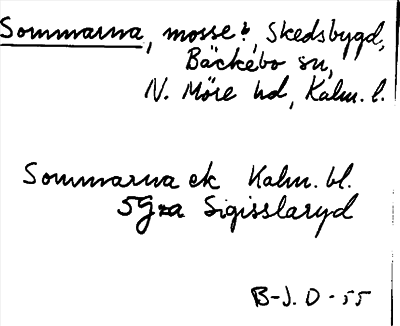 Sommarna, mosse i Skedsbygd,
Bäckebo sn,
N. Möre hd, Kalm. l.
Sommarna ek Kalm. bl.
5G2a Sigisslaryd
B-J. O - 55